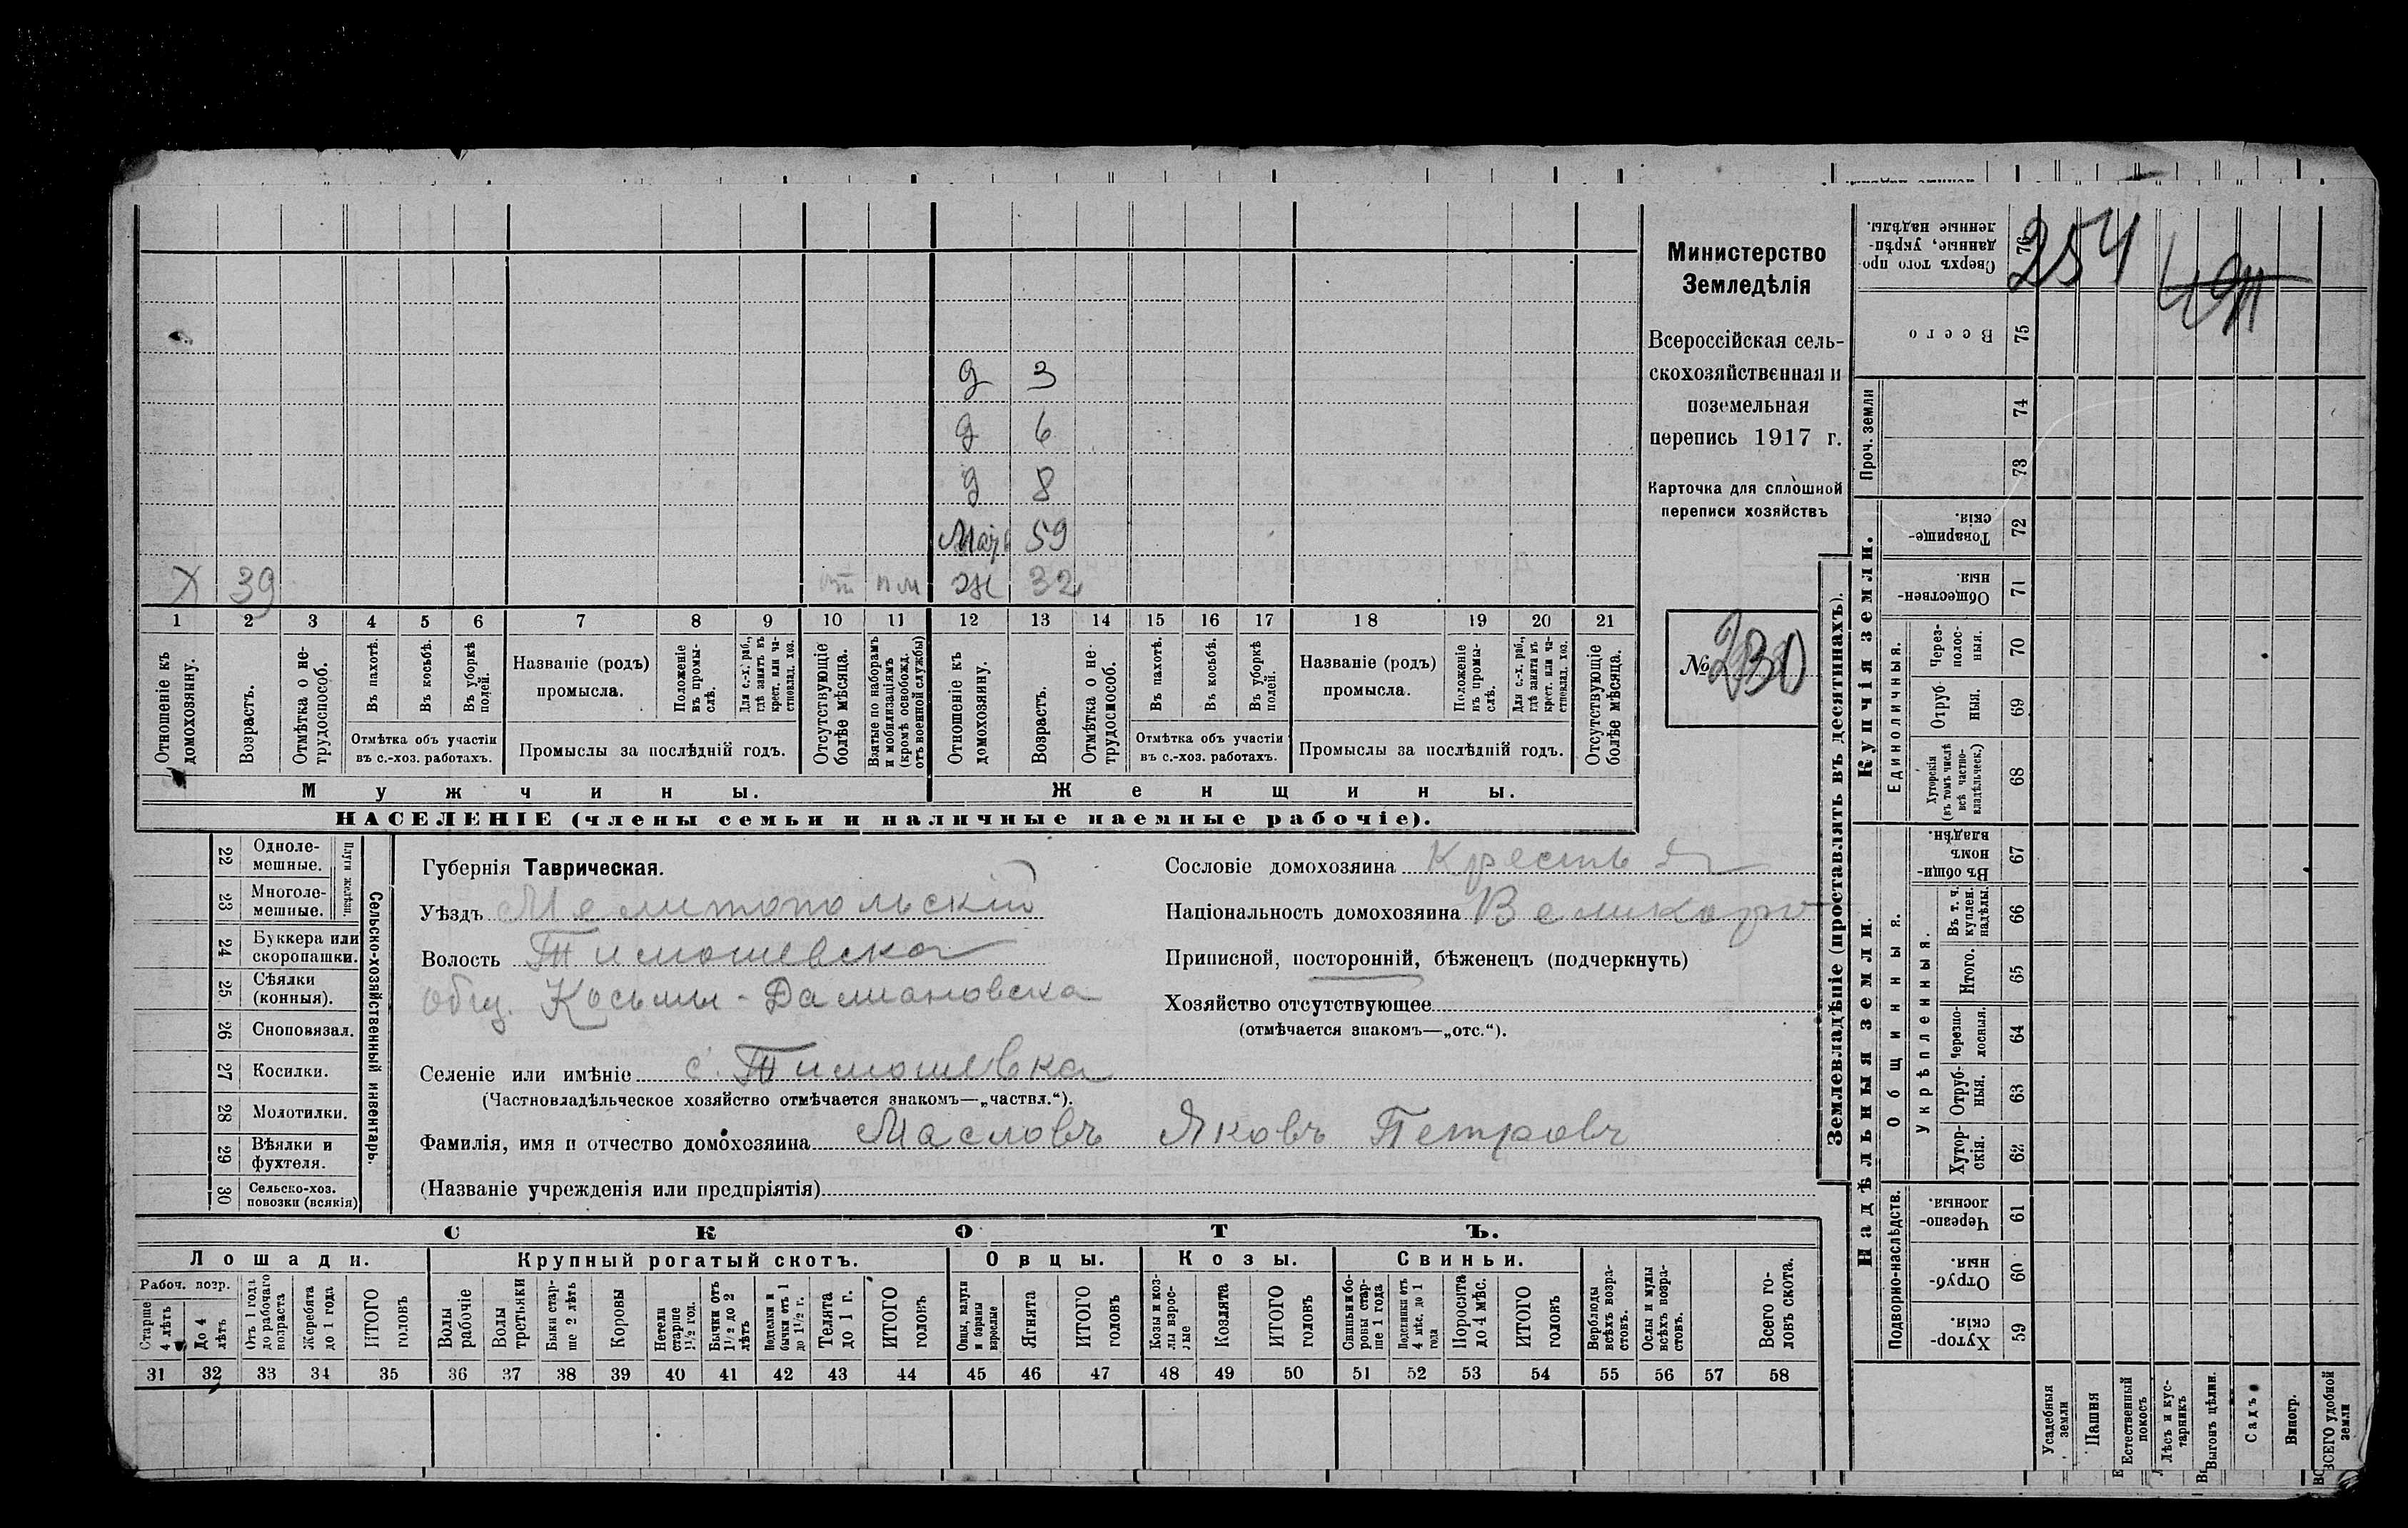 Министерство
Земледѣлія
Всероссійская сель-
скохозяйственная и
поземельная
перепись 1917 г.
Карточка для сплошной
переписи хозяйствъ
№ 230
254
д 3
д 6
д 8
59
Х 39
пм ж 32
1 2 3 4 5 6 7 8 9 10 11 12 13 14 15 16 17 18 19 20 21
Отношеніе къ
домохозяину.
Возрастъ.
Отмѣтка о не-
трудоспособ.
Въ пахотѣ.
Въ косьбѣ.
Въ уборкѣ
полей.
Отмѣтка объ участіи
въ с.-хоз. работахъ.
Названіе (родъ)
промысла.
Положеніе
въ промы-
слѣ.
Для с.-х. раб.,
гдѣ занятъ въ
крест. или ча-
стновлад. хоз.
Промыслы за послѣдній годъ.
Отсутствующіе
болѣе мѣсяца.
Взятые по наборамъ
и мобилизаціямъ
(кромѣ освобожд.
отъ военной службы)
Отношеніе къ
домохозяину.
Возрастъ.
Отмѣтка о не-
трудоспособ.
Въ пахотѣ.
Въ косьбѣ.
Въ уборкѣ
полей.
Отмѣтка объ участіи
въ с.-хоз. работахъ.
Названіе (родъ)
промысла.
Положеніе
въ промы-
слѣ.
Для с.-х. раб.,
гдѣ занята въ
крест. или ча-
стновлад. хоз.
Промыслы за послѣдній годъ.
Отсутствующіе
болѣе мѣсяца.
Мужчины.
Женщины.
НАСЕЛЕНІЕ (члены семьи и наличные наемные рабочіе).
Сельско-хозяйственный инвентарь.
Плуги желѣзн.
22 Одноле-
мешные.
23 Многоле-
мешные.
24 Буккера или
скоропашки.
25 Сѣялки
(конныя).
26 Сноповязал.
27 Косилки.
28 Молотилки.
29 Вѣялки и
фухтеля.
30 Сельско-хоз.
повозки (всякія)
Губернія Таврическая.
Уѣздъ Мелитопольскій
Волость Тимошевска
общ. Косьмы-Дамиановска
Селеніе или имѣніе с. Тимошевка
(Частновладѣльческое хозяйство отмѣчается знакомъ—„частвл.“).
Фамилія, имя и отчество домохозяина Масловъ Яковъ Петровъ
(Названіе учрежденія или предпріятія)
Сословіе домохозяина
Національность домохозяина
Приписной, посторонній, бѣженецъ (подчеркнуть)
Хозяйство отсутствующее
(отмѣчается знакомъ—„отс.“).
СКОТЪ.
Лошади.
Крупный рогатый скотъ.
Овцы.
Козы.
Свиньи.
Рабоч. возр.
Старше
4 лѣтъ
До 4
лѣтъ
Отъ 1 года
до рабочаго
возраста
Жеребята
до 1 года
ИТОГО
головъ
Волы
рабочіе
Волы
третьяки
Быки стар-
ше 2 лѣтъ
Коровы
Нетели
старше
1½ год.
Бычки отъ
1½ до 2
лѣтъ
Подтелки и
бычки отъ 1
до 1½ г.
Телята
до 1 г.
ИТОГО
головъ
Овцы, валухи
и бараны
взрослые
Ягнята
ИТОГО
головъ
Козы и коз-
лы взрос-
лые
Козлята
ИТОГО
головъ
Свиньи и бо-
ровы стар-
ше 1 года
Подсвинки отъ
4 мѣс. до 1
года
Поросята
до 4 мѣс.
ИТОГО
головъ
Верблюды
всѣхъ возра-
стовъ.
Ослы и мулы
всѣхъ возра-
стовъ.
Всего го-
ловъ скота.
31 32 33 34 35 36 37 38 39 40 41 42 43 44 45 46 47 48 49 50 51 52 53 54 55 56 57 58
Землевладѣніе (проставлять въ десятинахъ).
Купчія земли.
Надѣльныя земли.
Сверхъ того про-
данные, укрѣп-
ленные надѣлы.
76
Всего
75
Проч. земли
74
73
Товарище-
скія.
72
Обществен-
ныя.
71
Единоличныя.
Через-
полос-
ныя.
70
Отруб-
ныя.
69
Хуторскія
(въ томъ числѣ
всѣ частно-
владѣльческ.)
68
Общинныя.
Въ общи-
номъ
владѣн.
67
Укрѣпленныя.
Въ т. ч.
куплен.
надѣлы.
66
Итого.
65
Черезпо-
лосныя.
64
Отруб-
ныя.
63
Хутор-
скія.
62
Подворно-наслѣдств.
Черезпо-
лосныя.
61
Отруб-
ныя.
60
Хутор-
скія.
59
Усадебныя
земли
Пашня
Естественный
покосъ
Лѣсъ и кус-
тарникъ
Выгонъ цѣлин.
Садъ
Виногр.
ВСЕГО удобной
земли